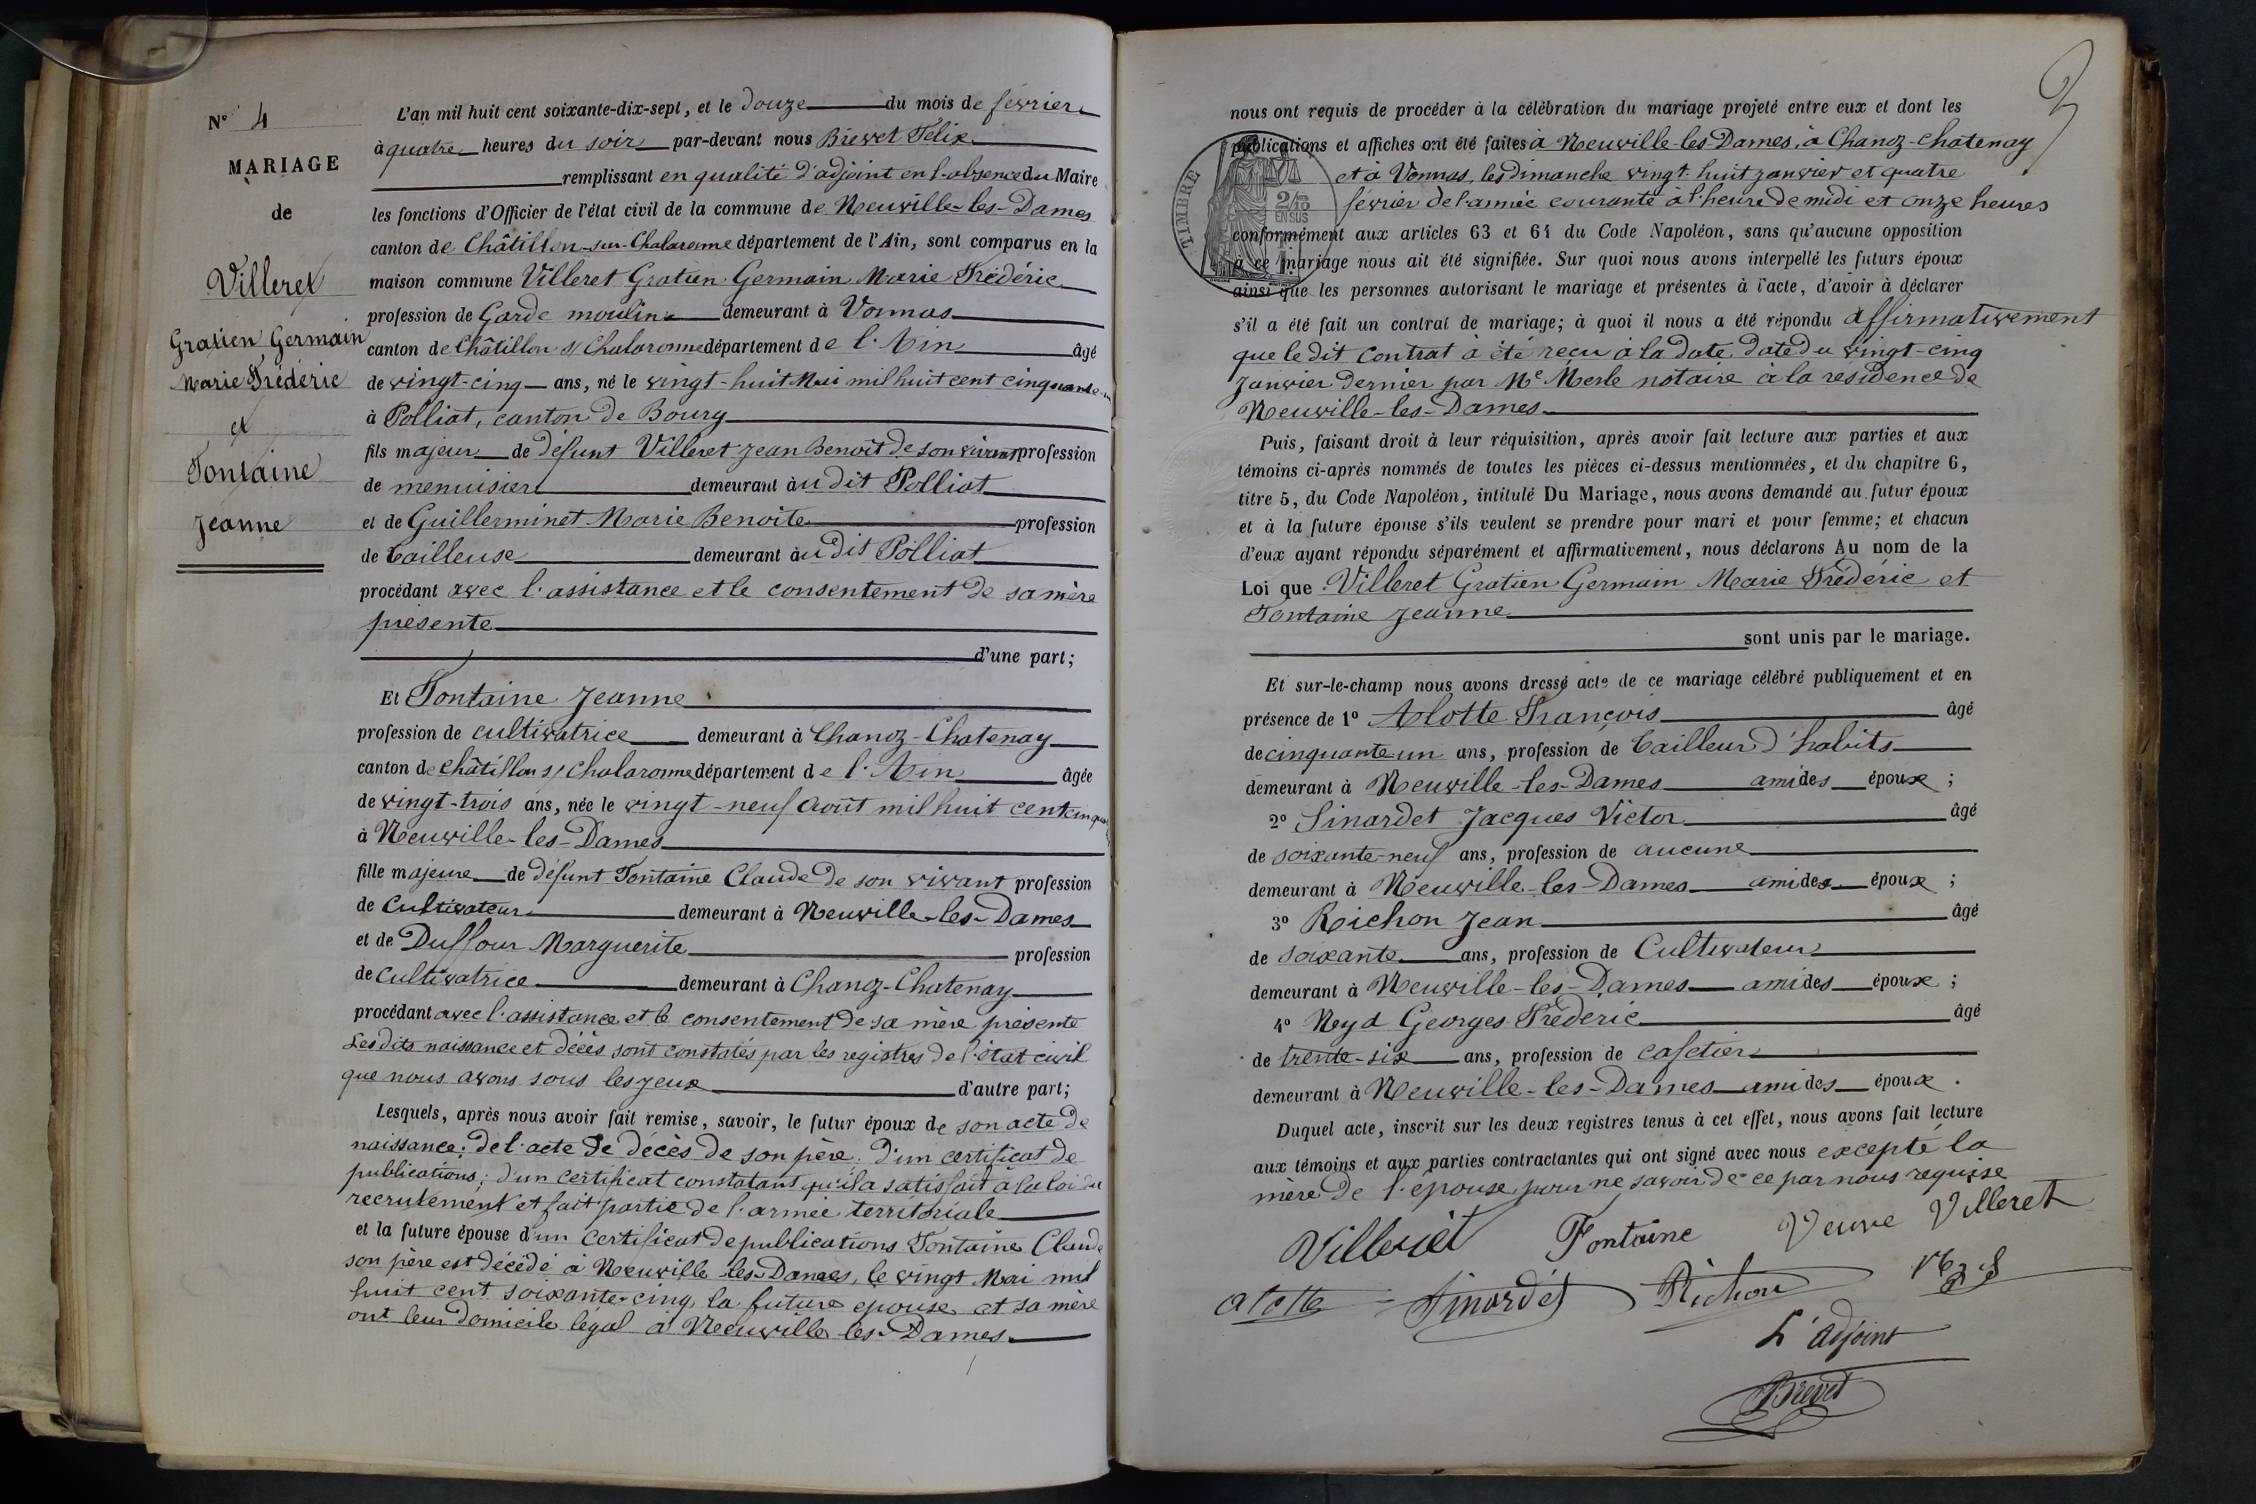 N° 4
MARIAGE
de
Villeret
Gratien Germain
Marie Frédéric
et
Fontaine
Jeanne
L'an mil huit cent soixante-dix-sept, et le douze du mois de février
à quatre heures du soir par-devant nous Brevet Félix
remplissant en qualité d'adjoint en l'absence du Maire
les fonctions d'Officier de l'état civil de la commune de Neuville-les-Dames
canton de Châtillon-sur-Chalaronne département de l'Ain, sont comparus en la
maison commune Villeret Gratien Germain Marie Frédéric
profession de Garde moulin demeurant à Vonnas
canton de Châtillon s/ Chalaronne département de l'Ain âgé
de vingt-cinq ans, né le vingt-huit Mai mil huit cent cinquante
à Polliat, canton de Bourg
fils majeur de défunt Villeret Jean Benoît de son vivant profession
de menuisier demeurant à u dit Polliat
et de Guillerminet Marie Benoite profession
de tailleuse demeurant à u dit Polliat
procédant avec l'assistance et le consentement de sa mère
présente
d'une part;
Et Fontaine Jeanne
profession de cultivatrice demeurant à Chanoz-Chatenay
canton de Châtillon s/ Chalaronne département de l'Ain âgée
de vingt-trois ans, née le vingt-neuf août mil huit cent
à Neuville-les-Dames
fille majeure de défunt Fontaine Claude de son vivant profession
de Cultivateur demeurant à Neuville-les-Dames
et de Duffour Marguerite profession
de cultivatrice demeurant à Chanoz-Chatenay
procédant avec l'assistance et le consentement de sa mère présente
Lesdits naissance et décès sont constatés par les registres de l'état civil
que nous avons sous les yeux d'autre part;
Lesquels, après nous avoir fait remise, savoir, le futur époux de son acte de
naissance; de l'acte de décès de son père; d'un certificat de
publications; d'un certificat constatant qu'il a satisfait à la loi du
recrutement et fait partie de l'armée territoriale
et la future épouse d'un certificat de publications Fontaine Claude
son père est décédé à Neuville-les-Dames, le vingt Mai mil
huit cent soixante-cinq, la future épouse et sa mère
ont leur domicile légal à Neuville-les-Dames
nous ont requis de procéder à la célébration du mariage projeté entre eux et dont les
publications et affiches ont été faites à Neuville-les-Dames, à Chanoz-Chatenay
et à Vonnas, les dimanche vingt-huit janvier et quatre
février de l'année courante à l'heure de midi et onze heures
conformément aux articles 63 et 64 du Code Napoléon, sans qu'aucune opposition
à ce mariage nous ait été signifiée. Sur quoi nous avons interpellé les futurs époux
ainsi que les personnes autorisant le mariage et présentes à l'acte, d'avoir à déclarer
s'il a été fait un contrat de mariage; à quoi il nous a été répondu affirmativement
que le dit contrat à été reçu à la date date du vingt-cinq
Janvier dernier par Me Merle notaire à la résidence de
Neuville-les-Dames
Puis, faisant droit à leur réquisition, après avoir fait lecture aux parties et aux
témoins ci-après nommés de toutes les pièces ci-dessus mentionnées, et du chapitre 6,
titre 5, du Code Napoléon, intitulé Du Mariage, nous avons demandé au futur époux
et à la future épouse s'ils veulent se prendre pour mari et pour femme; et chacun
d'eux ayant répondu séparément et affirmativement, nous déclarons Au nom de la
Loi que Villeret Gratien Germain Marie Frédéric et
Fontaine Jeanne
sont unis par le mariage.
Et sur-le-champ nous avons dressé acte de ce mariage célébré publiquement et en
présence de 1° Alotte François âgé
de cinquante un ans, profession de tailleur d'habits
demeurant à Neuville-les-Dames ami des époux ;
2° Sinardet Jacques Victor âgé
de soixante-neuf ans, profession de aucune
demeurant à Neuville-les-Dames ami des époux ;
3° Richon Jean âgé
de soixante ans, profession de Cultivateur
demeurant à Neuville-les-Dames ami des époux ;
4° Neyd Georges Frédéric âgé
de trente-six ans, profession de cafetier
demeurant à Neuville-les-Dames ami des époux .
Duquel acte, inscrit sur les deux registres tenus à cet effet, nous avons fait lecture
aux témoins et aux parties contractantes qui ont signé avec nous excepté la
mère de l'épouse pour ne savoir de ce par nous requise
Villeret Fontaine Veuve Villeret
alotte Sinardet Richon
L'adjoint
Brevet
TIMBRE
2/10
EN SUS